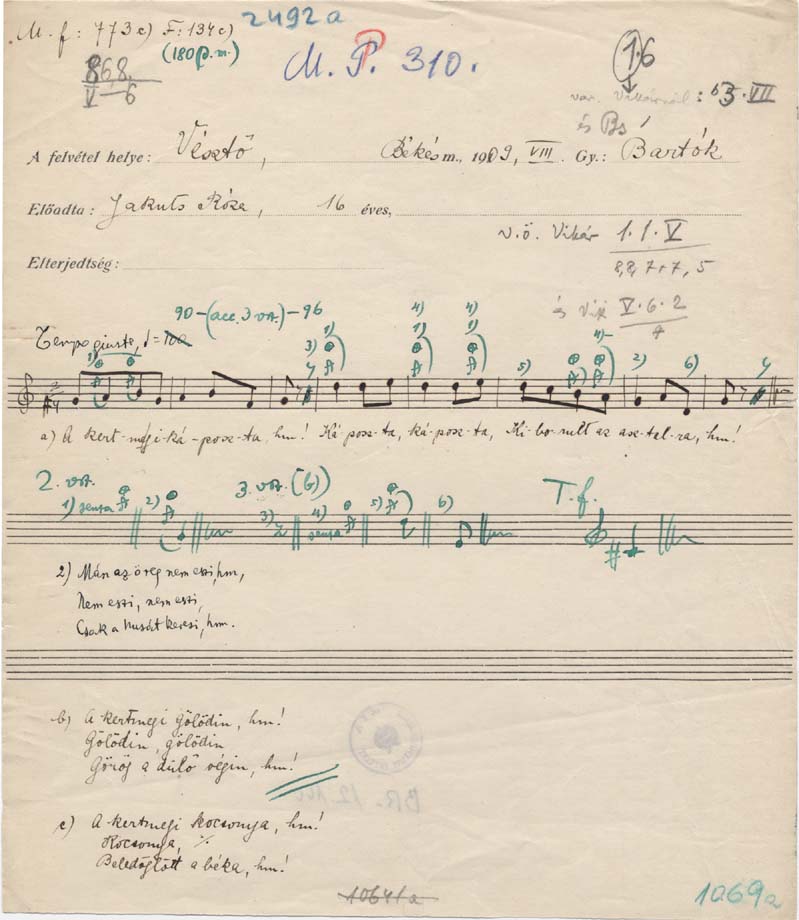 2492a
M. f: 773c) F: 134c)
(180p.m.)
868.
V-6
M. P. 310.
1.6
var. Vikárnál: 63.VII
és Bs
A felvétel helye: Vésztő, Békés m., 1909, VIII. Gy.: Bartók
Előadta: Jakuts Róza, 16 éves,
v.ö. Vikár 1.1.V
8,8,7+7,5
Elterjedtség:
és Vik V.6.2
4
90-(acc. 3 va.)-96
Tempo giusto, ♩=100
1) 3) 1) 4) 1) 4) 1) 5) 4) 2) 6)
2/4
a) A kert-mëgi-ká-posz-ta, hm! Ká-posz-ta, ká-posz-ta, Ki-bo-rult az asz-tal-ra, hm!
2. va. 3. va. (b) T. f.
1) senza 2) 3) 4) senza 5) 6)
2) Mán az öreg nem eszi, hm,
Nem eszi, nem eszi,
Csak a husát keresi, hm.
b) A kertmegi gölődin, hm!
Gölődin, gölődin
Görög a dülő végin, hm!
BR. 12
c) A kertmegi kocsonya, hm!
Kocsonya, ٪
Beledöglött a béka, hm!
10641a
1069a